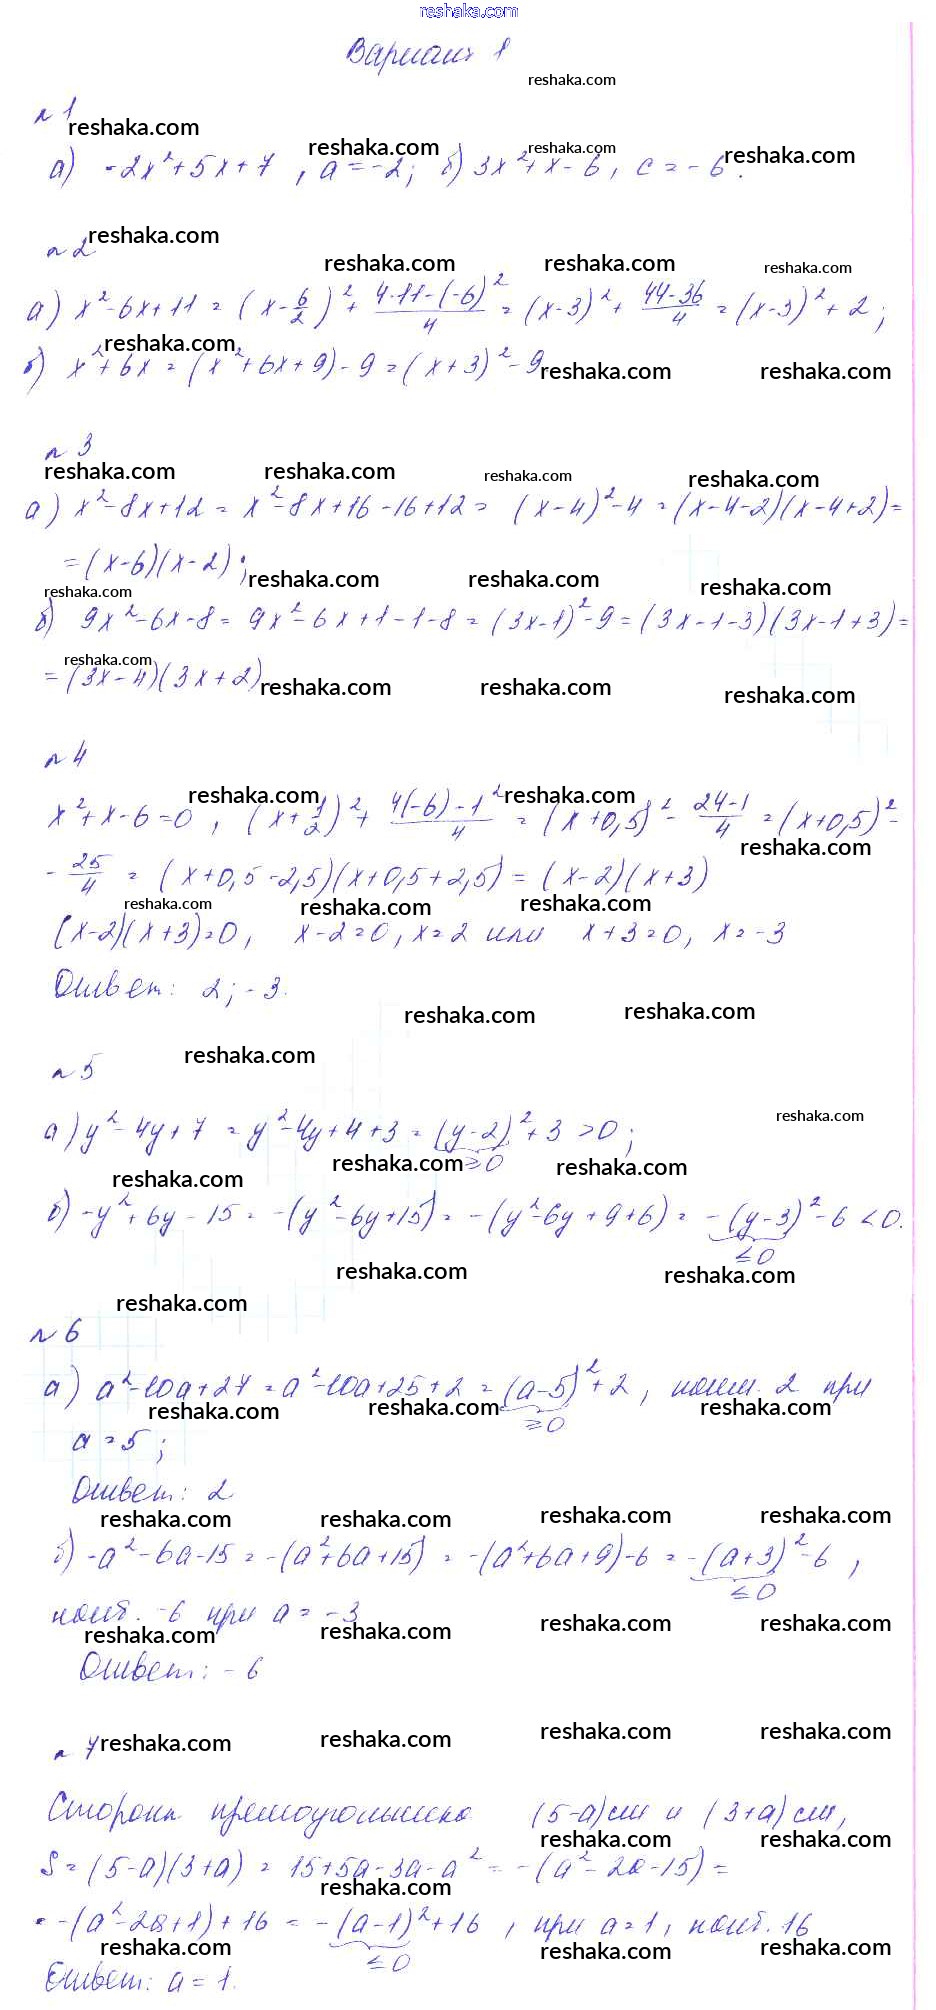 reshaka.com
Вариант 1
reshaka.com
№ 1
reshaka.com
reshaka.com reshaka.com reshaka.com
а) -2x²+5x+7, a=-2; б) 3x²+x-6, c=-6.
reshaka.com
№ 2
reshaka.com reshaka.com reshaka.com
а) x²-6x+11 = (x-6/2)²+ (4·11-(-6)²)/4 = (x-3)²+ (44-36)/4 = (x-3)²+2;
reshaka.com
б) x²+6x = (x²+6x+9)-9 = (x+3)²-9
reshaka.com reshaka.com
№ 3
reshaka.com reshaka.com reshaka.com reshaka.com
а) x²-8x+12 = x²-8x+16-16+12 = (x-4)²-4 = (x-4-2)(x-4+2)=
=(x-6)(x-2);
reshaka.com reshaka.com reshaka.com
reshaka.com
б) 9x²-6x-8 = 9x²-6x+1-1-8 = (3x-1)²-9 = (3x-1-3)(3x-1+3)=
reshaka.com
=(3x-4)(3x+2)
reshaka.com reshaka.com reshaka.com
№ 4
reshaka.com reshaka.com
x²+x-6=0, (x+1/2)²+ (4(-6)-1²)/4 = (x+0,5)²- (24-1)/4 = (x+0,5)²-
reshaka.com
- 25/4 = (x+0,5-2,5)(x+0,5+2,5) = (x-2)(x+3)
reshaka.com reshaka.com reshaka.com
(x-2)(x+3)=0, x-2=0, x=2 или x+3=0, x=-3
Ответ: 2; -3.
reshaka.com reshaka.com
reshaka.com
№ 5
reshaka.com
а) y²-4y+7 = y²-4y+4+3 = (y-2)²+3 >0;
≥0
reshaka.com reshaka.com reshaka.com
б) -y²+6y-15 = -(y²-6y+15) = -(y²-6y+9+6) = -(y-3)²-6 <0.
≤0
reshaka.com reshaka.com
reshaka.com
№ 6
а) a²-10a+27 = a²-10a+25+2 = (a-5)²+2, наим. 2 при
≥0
reshaka.com reshaka.com reshaka.com
a=5;
Ответ: 2
reshaka.com reshaka.com reshaka.com reshaka.com
б) -a²-6a-15 = -(a²+6a+15) = -(a²+6a+9)-6 = -(a+3)²-6,
≤0
наиб. -6 при a=-3
reshaka.com reshaka.com reshaka.com reshaka.com
Ответ: -6
№ 7
reshaka.com reshaka.com reshaka.com reshaka.com
Стороны прямоугольника (5-a)см и (3+a)см,
reshaka.com reshaka.com
S=(5-a)(3+a) = 15+5a-3a-a² = -(a²-2a-15)=
reshaka.com
= -(a²-2a+1)+16 = -(a-1)²+16, при a=1, наиб. 16
≤0
reshaka.com reshaka.com reshaka.com
Ответ: a=1.